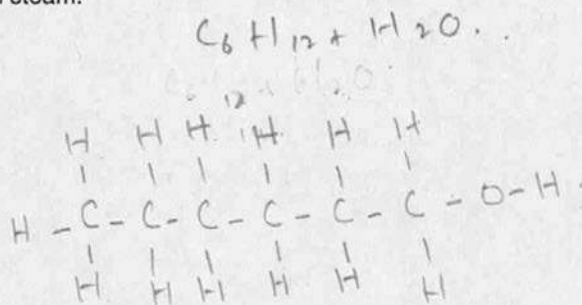 steam.
C6H12 + H2O. .
12
H H H H H H
H - C - C - C - C - C - C - O - H .
H H H H H H